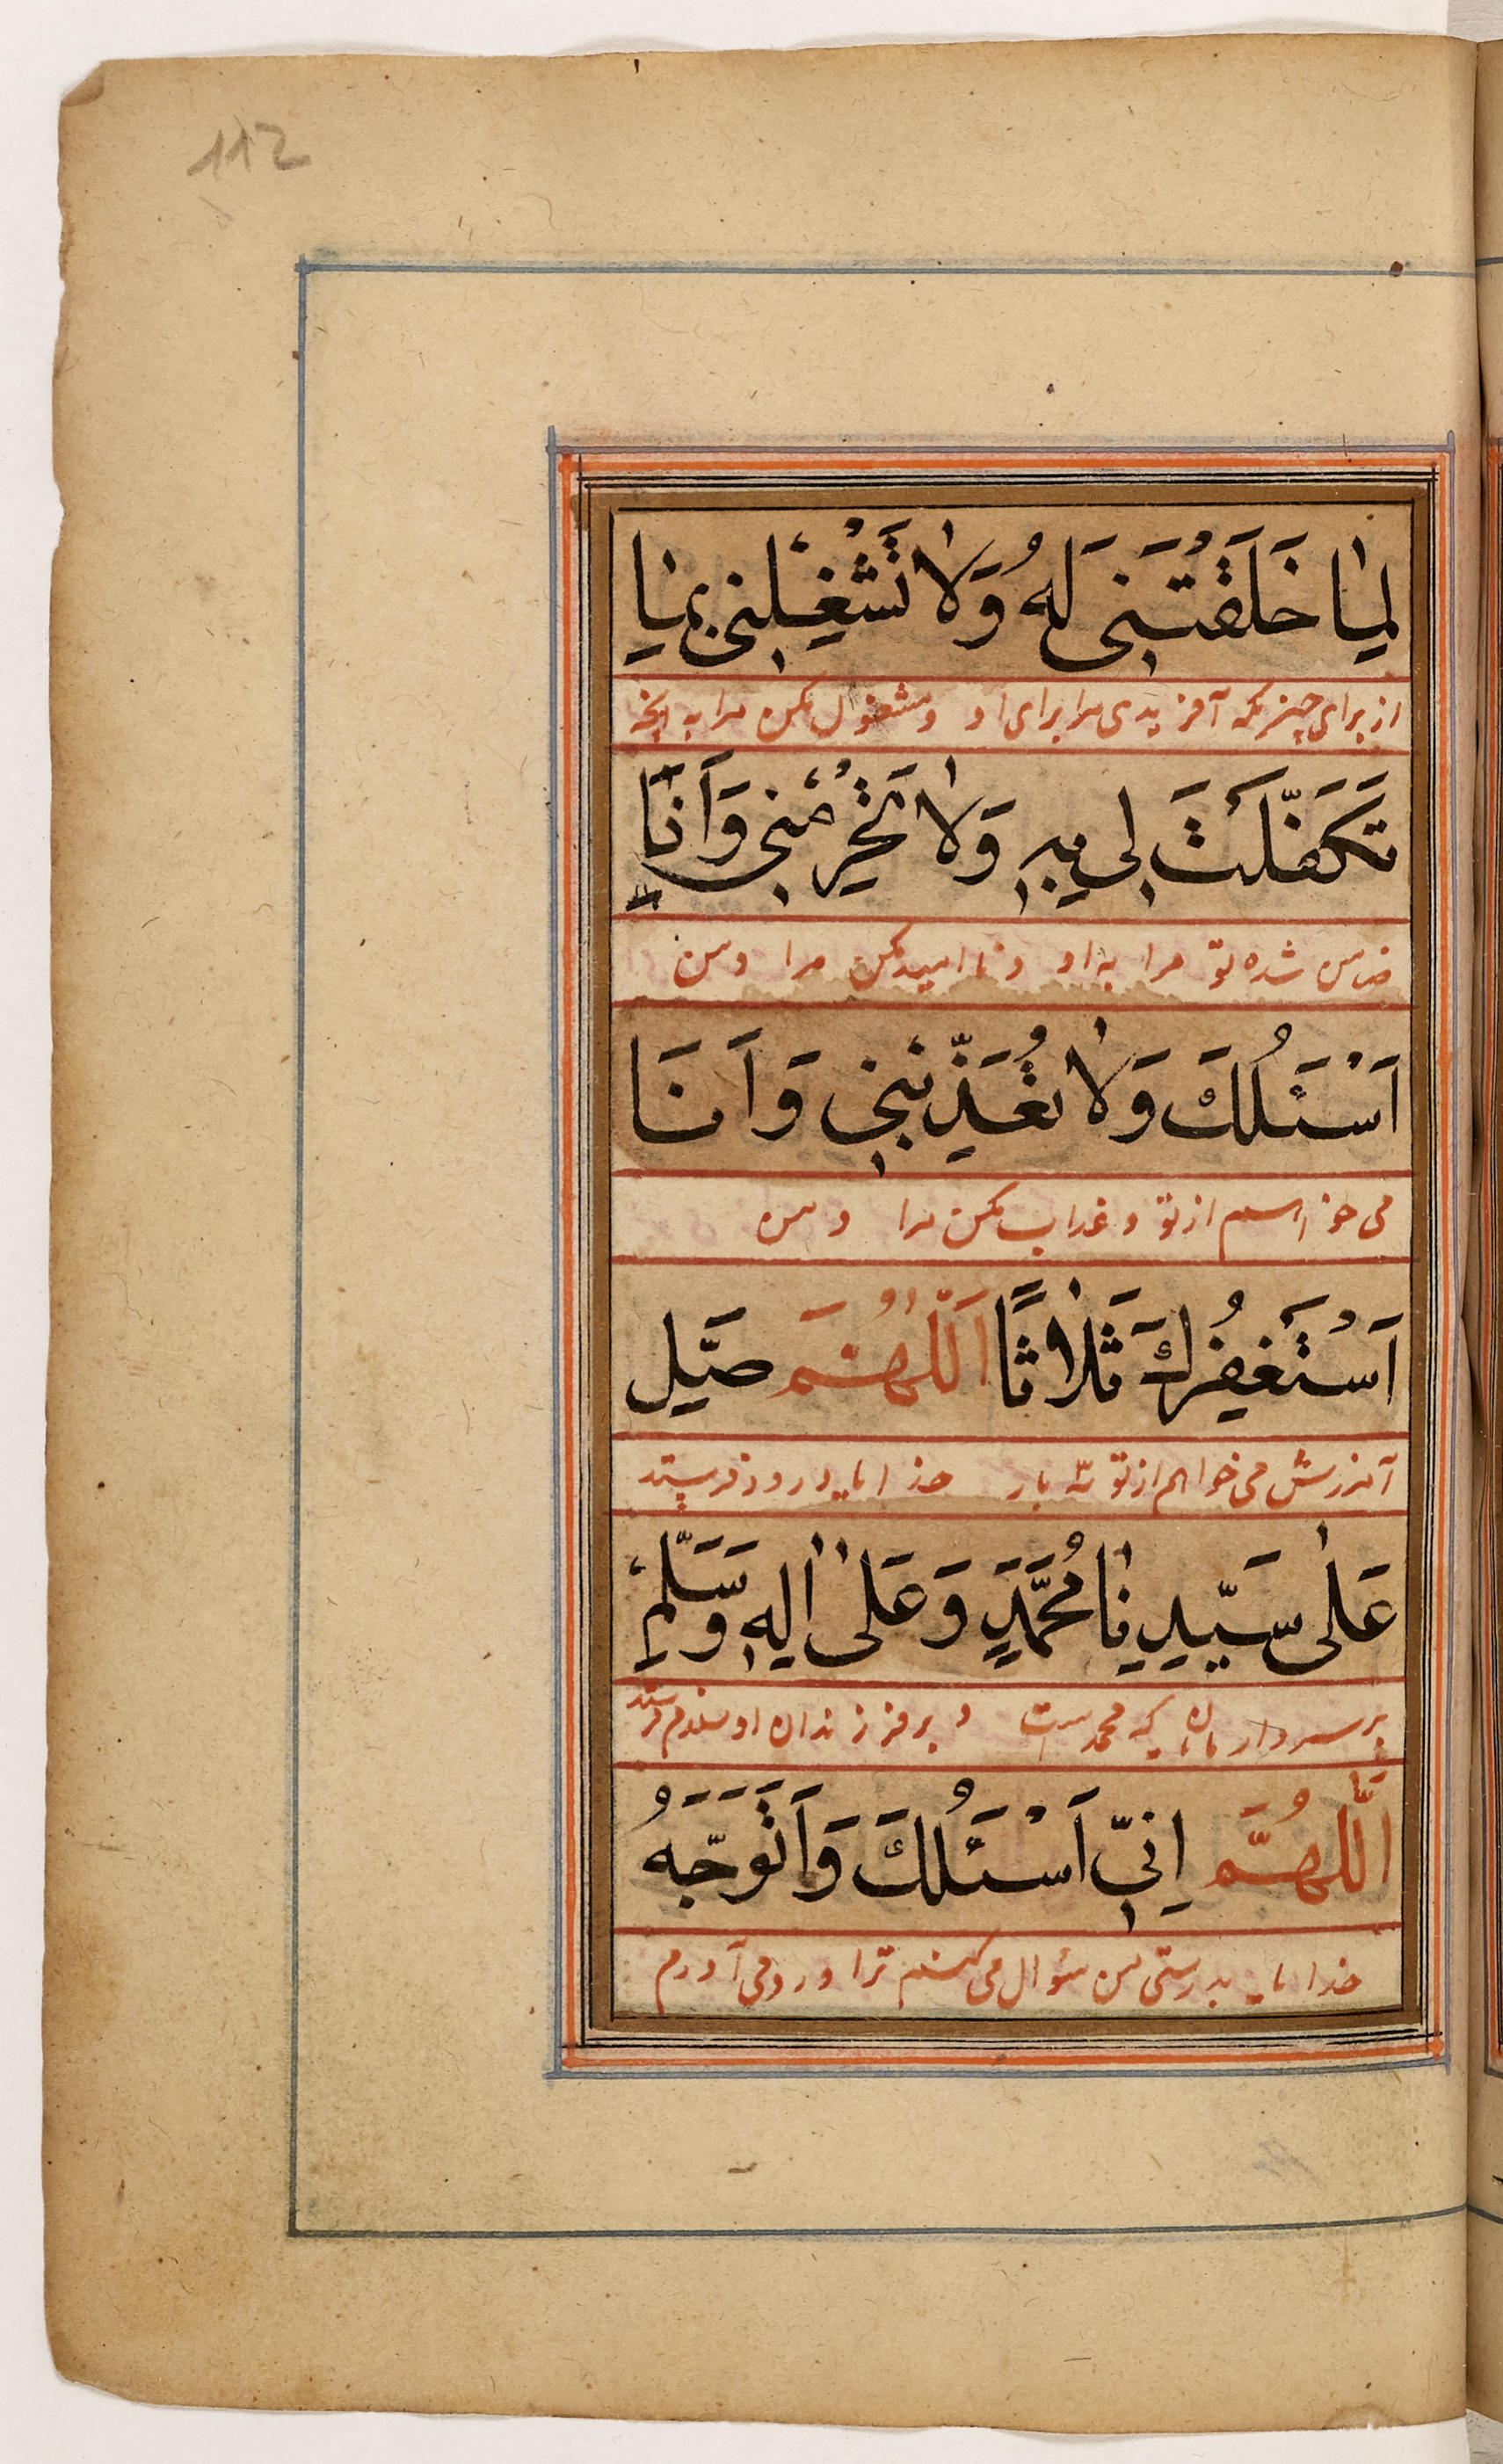 112
لِمٰا خَلَقْتَنِی لَهُ وَلاٰ تَشْغِلْنِی بِمٰا
از برای چیزیکه آفریدی مرا برای او و مشغول مکن مرا به آنچه
تَكَفَّلْتَ لِی بِهِ وَلاٰ تَحْرِمْنِی وَاَنَا
ضامن شده تو مرا به او و نا امید مکن مرا و من
اَسْئَلُكَ وَلاٰ تُعَذِّبْنِی وَاَنَا
می خواهم از تو و عذاب مکن مرا و من
اَسْتَغْفِرُكَ ثَلٰاثًا اَللّٰهُمَّ صَلِّ
آمرزش می خواهم از تو سه بار خدایا درود فرست
عَلٰی سَیِّدِنٰا مُحَمَّدٍ وَعَلٰی اٰلِهِ وَسَلِّمْ
بر سردار مایان که محمد است و بر فرزندان او سلام فرست
اَللّٰهُمَّ اِنِّی اَسْئَلُكَ وَاَتَوَجَّهُ
خدایا بدرستی من سؤال می کنم ترا و رو می آورم